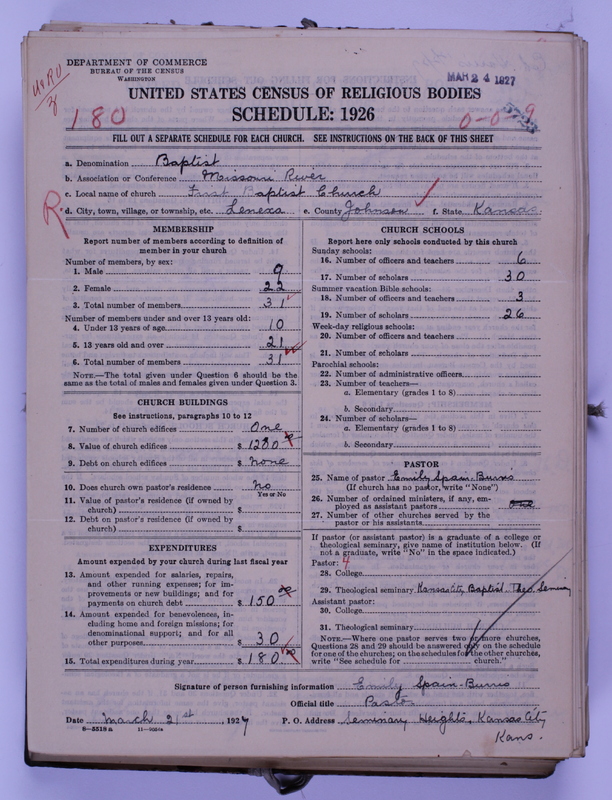 DEPARTMENT OF COMMERCE
BUREAU OF THE CENSUS
WASHINGTON
MAR 24 1927
UNITED STATES CENSUS OF RELIGIOUS BODIES
SCHEDULE: 1926
180
0-0-9
FILL OUT A SEPARATE SCHEDULE FOR EACH CHURCH. SEE INSTRUCTIONS ON THE BACK OF THIS SHEET
a. Denomination Baptist
b. Association or Conference Missouri River
c. Local name of church First Baptist Church
R
d. City, town, village, or township, etc. Lenexa e. County Johnson f. State Kansas
MEMBERSHIP
Report number of members according to definition of
member in your church
Number of members, by sex:
1. Male 9
2. Female 22
3. Total number of members 31
Number of members under and over 13 years old:
4. Under 13 years of age 10
5. 13 years old and over 21
6. Total number of members 31
NOTE.—The total given under Question 6 should be the
same as the total of males and females given under Question 3.
CHURCH BUILDINGS
See instructions, paragraphs 10 to 12
7. Number of church edifices One
8. Value of church edifices $ 1200
9. Debt on church edifices $ None
10. Does church own pastor's residence No
Yes or No
11. Value of pastor's residence (if owned by
church) $
12. Debt on pastor's residence (if owned by
church) $
EXPENDITURES
Amount expended by your church during last fiscal year
13. Amount expended for salaries, repairs,
and other running expenses; for im-
provements or new buildings; and for
payments on church debt $ 150
14. Amount expended for benevolences, in-
cluding home and foreign missions; for
denominational support; and for all
other purposes $ 30
15. Total expenditures during year $ 180
CHURCH SCHOOLS
Report here only schools conducted by this church
Sunday schools:
16. Number of officers and teachers 6
17. Number of scholars 30
Summer vacation Bible schools:
18. Number of officers and teachers 3
19. Number of scholars 26
Week-day religious schools:
20. Number of officers and teachers
21. Number of scholars
Parochial schools:
22. Number of administrative officers
23. Number of teachers—
a. Elementary (grades 1 to 8)
b. Secondary
24. Number of scholars—
a. Elementary (grades 1 to 8)
b. Secondary
PASTOR
25. Name of pastor Emily Spain-Burris
(If church has no pastor, write "None")
26. Number of ordained ministers, if any, em-
ployed as assistant pastors
27. Number of other churches served by the
pastor or his assistants
If pastor (or assistant pastor) is a graduate of a college or
theological seminary, give name of institution below. (If
not a graduate, write "No" in the space indicated.)
Pastor: 4
28. College
29. Theological seminary Kansas City Baptist Theo. Seminary
Assistant pastor:
30. College
31. Theological seminary
NOTE.—Where one pastor serves two or more churches,
Questions 28 and 29 should be answered only on the schedule
for one of the churches; on the schedules for the other churches,
write "See schedule for church."
Signature of person furnishing information Emily Spain-Burris
Official title Pastor
Date March 21st, 1927 P. O. Address Seminary Heights, Kansas City
Kans.
8—5518a